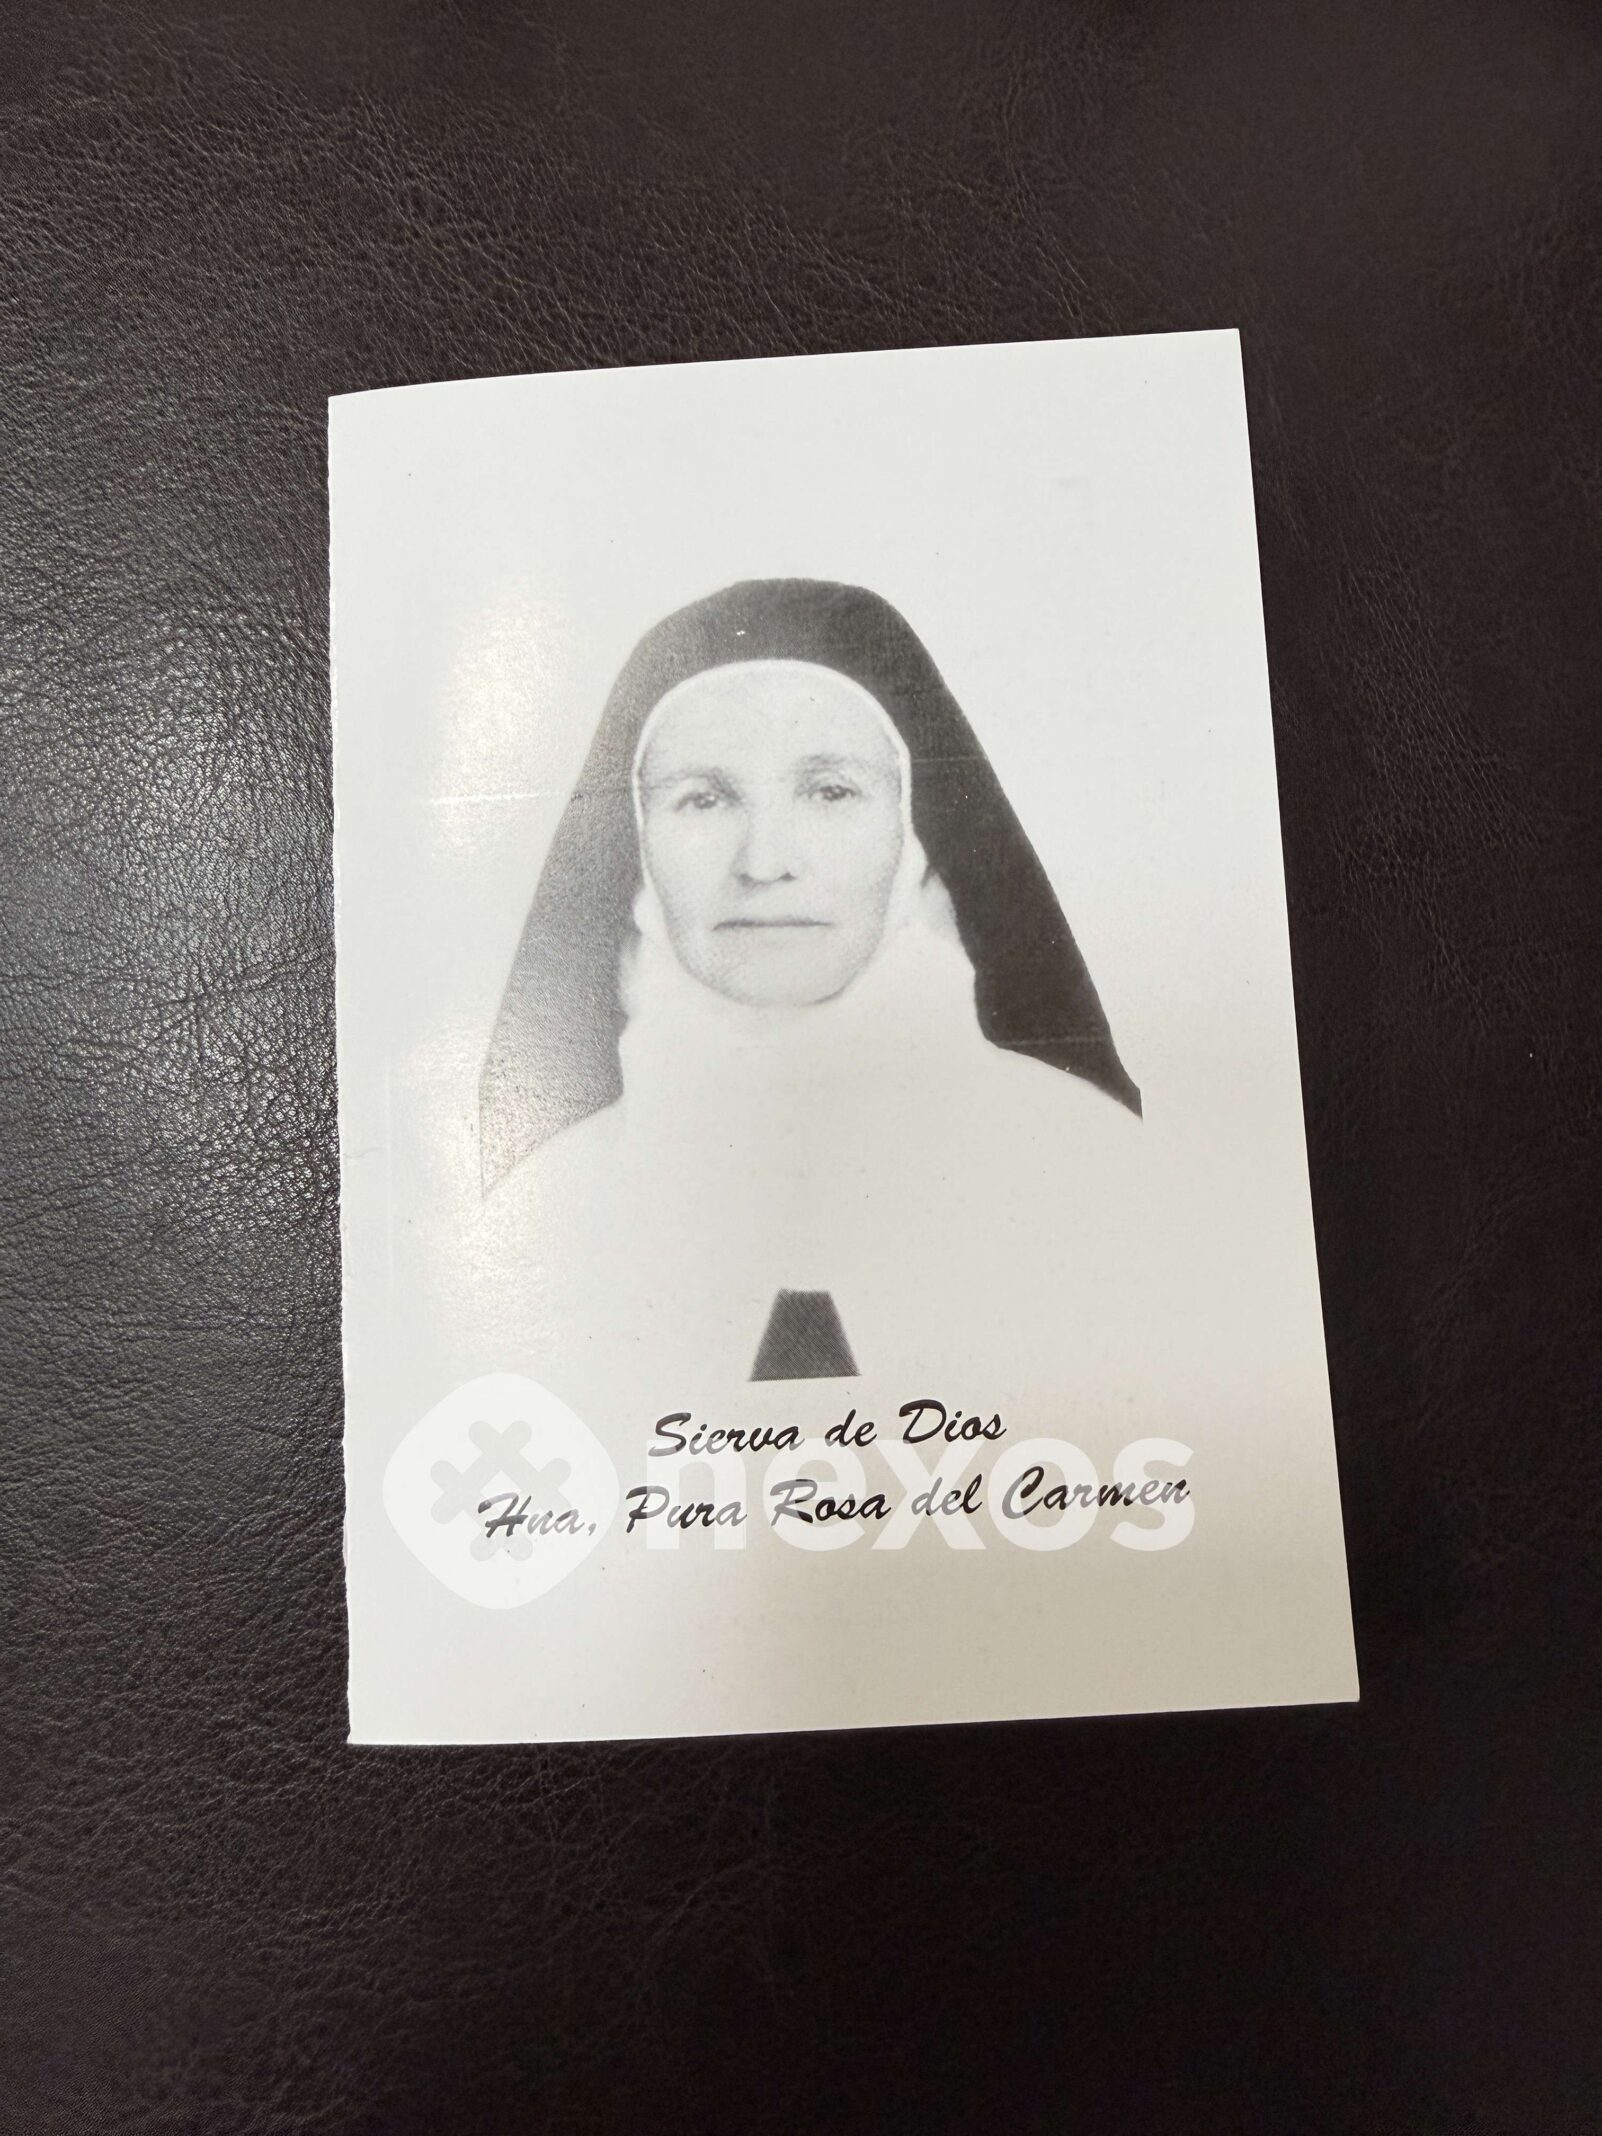 Sierva de Dios
Hna, Pura Rosa del Carmen
nexos